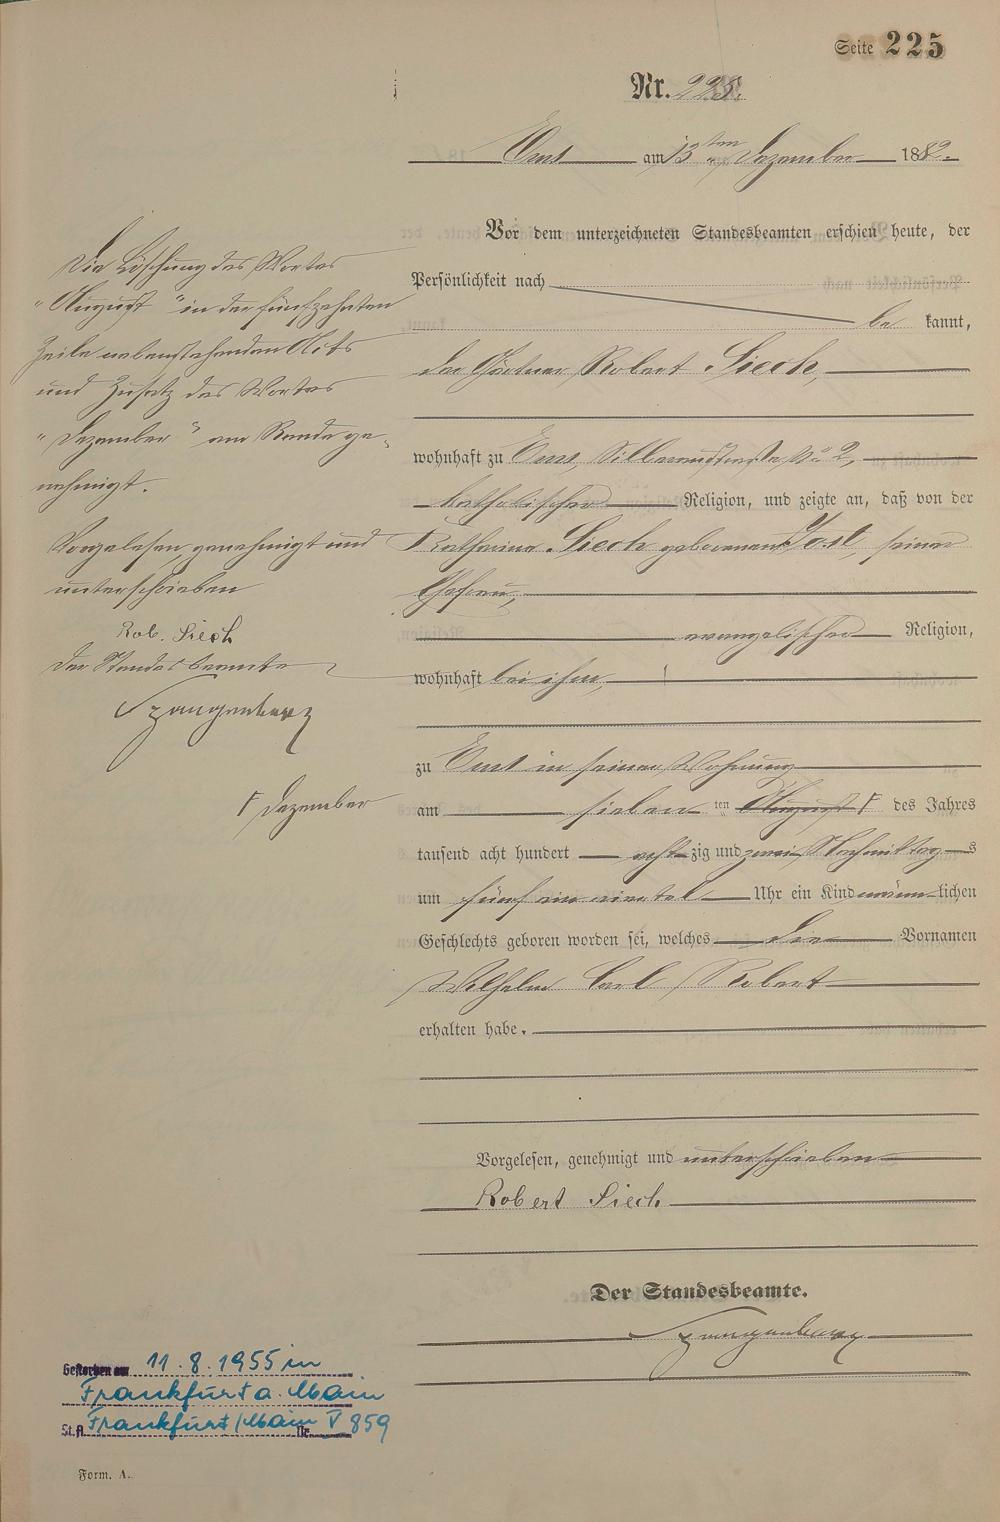 Seite 225
Nr. 225.
Ems am 13ten Dezember 1882.
Vor dem unterzeichneten Standesbeamten erschien heute, der
Persönlichkeit nach
be kannt,
der Gärtner Robert Siech,
wohnhaft zu Ems, Silberaustraße No 2,
katholischer Religion, und zeigte an, daß von der
Katharina Siech geborenen Jost, seiner
Ehefrau,
evangelischer Religion,
wohnhaft bei ihm,
zu Ems in seiner Wohnung
am sieben ten August Γ des Jahres
tausend acht hundert acht zig und zwei Nachmittag s
um fünf ein viertel Uhr ein Kind männ lichen
Geschlechts geboren worden sei, welches die Vornamen
Wilhelm Carl Robert
erhalten habe.
Vorgelesen, genehmigt und unterschrieben
Robert Siech
Der Standesbeamte.
Spangenberg
Die Löschung des Wortes
"August" in der fünfzehnten
Zeile nebenstehenden Akts
und Zusatz des Wortes
"Dezember" am Rande ge-
nehmigt.
Vorgelesen, genehmigt und
unterschrieben
Rob. Siech
Der Standesbeamte
Spangenberg
Γ Dezember
Gestorben am 11.8.1955 in
Frankfurt a. Main
St.A. Frankfurt/Main Nr. V 859
Form. A.